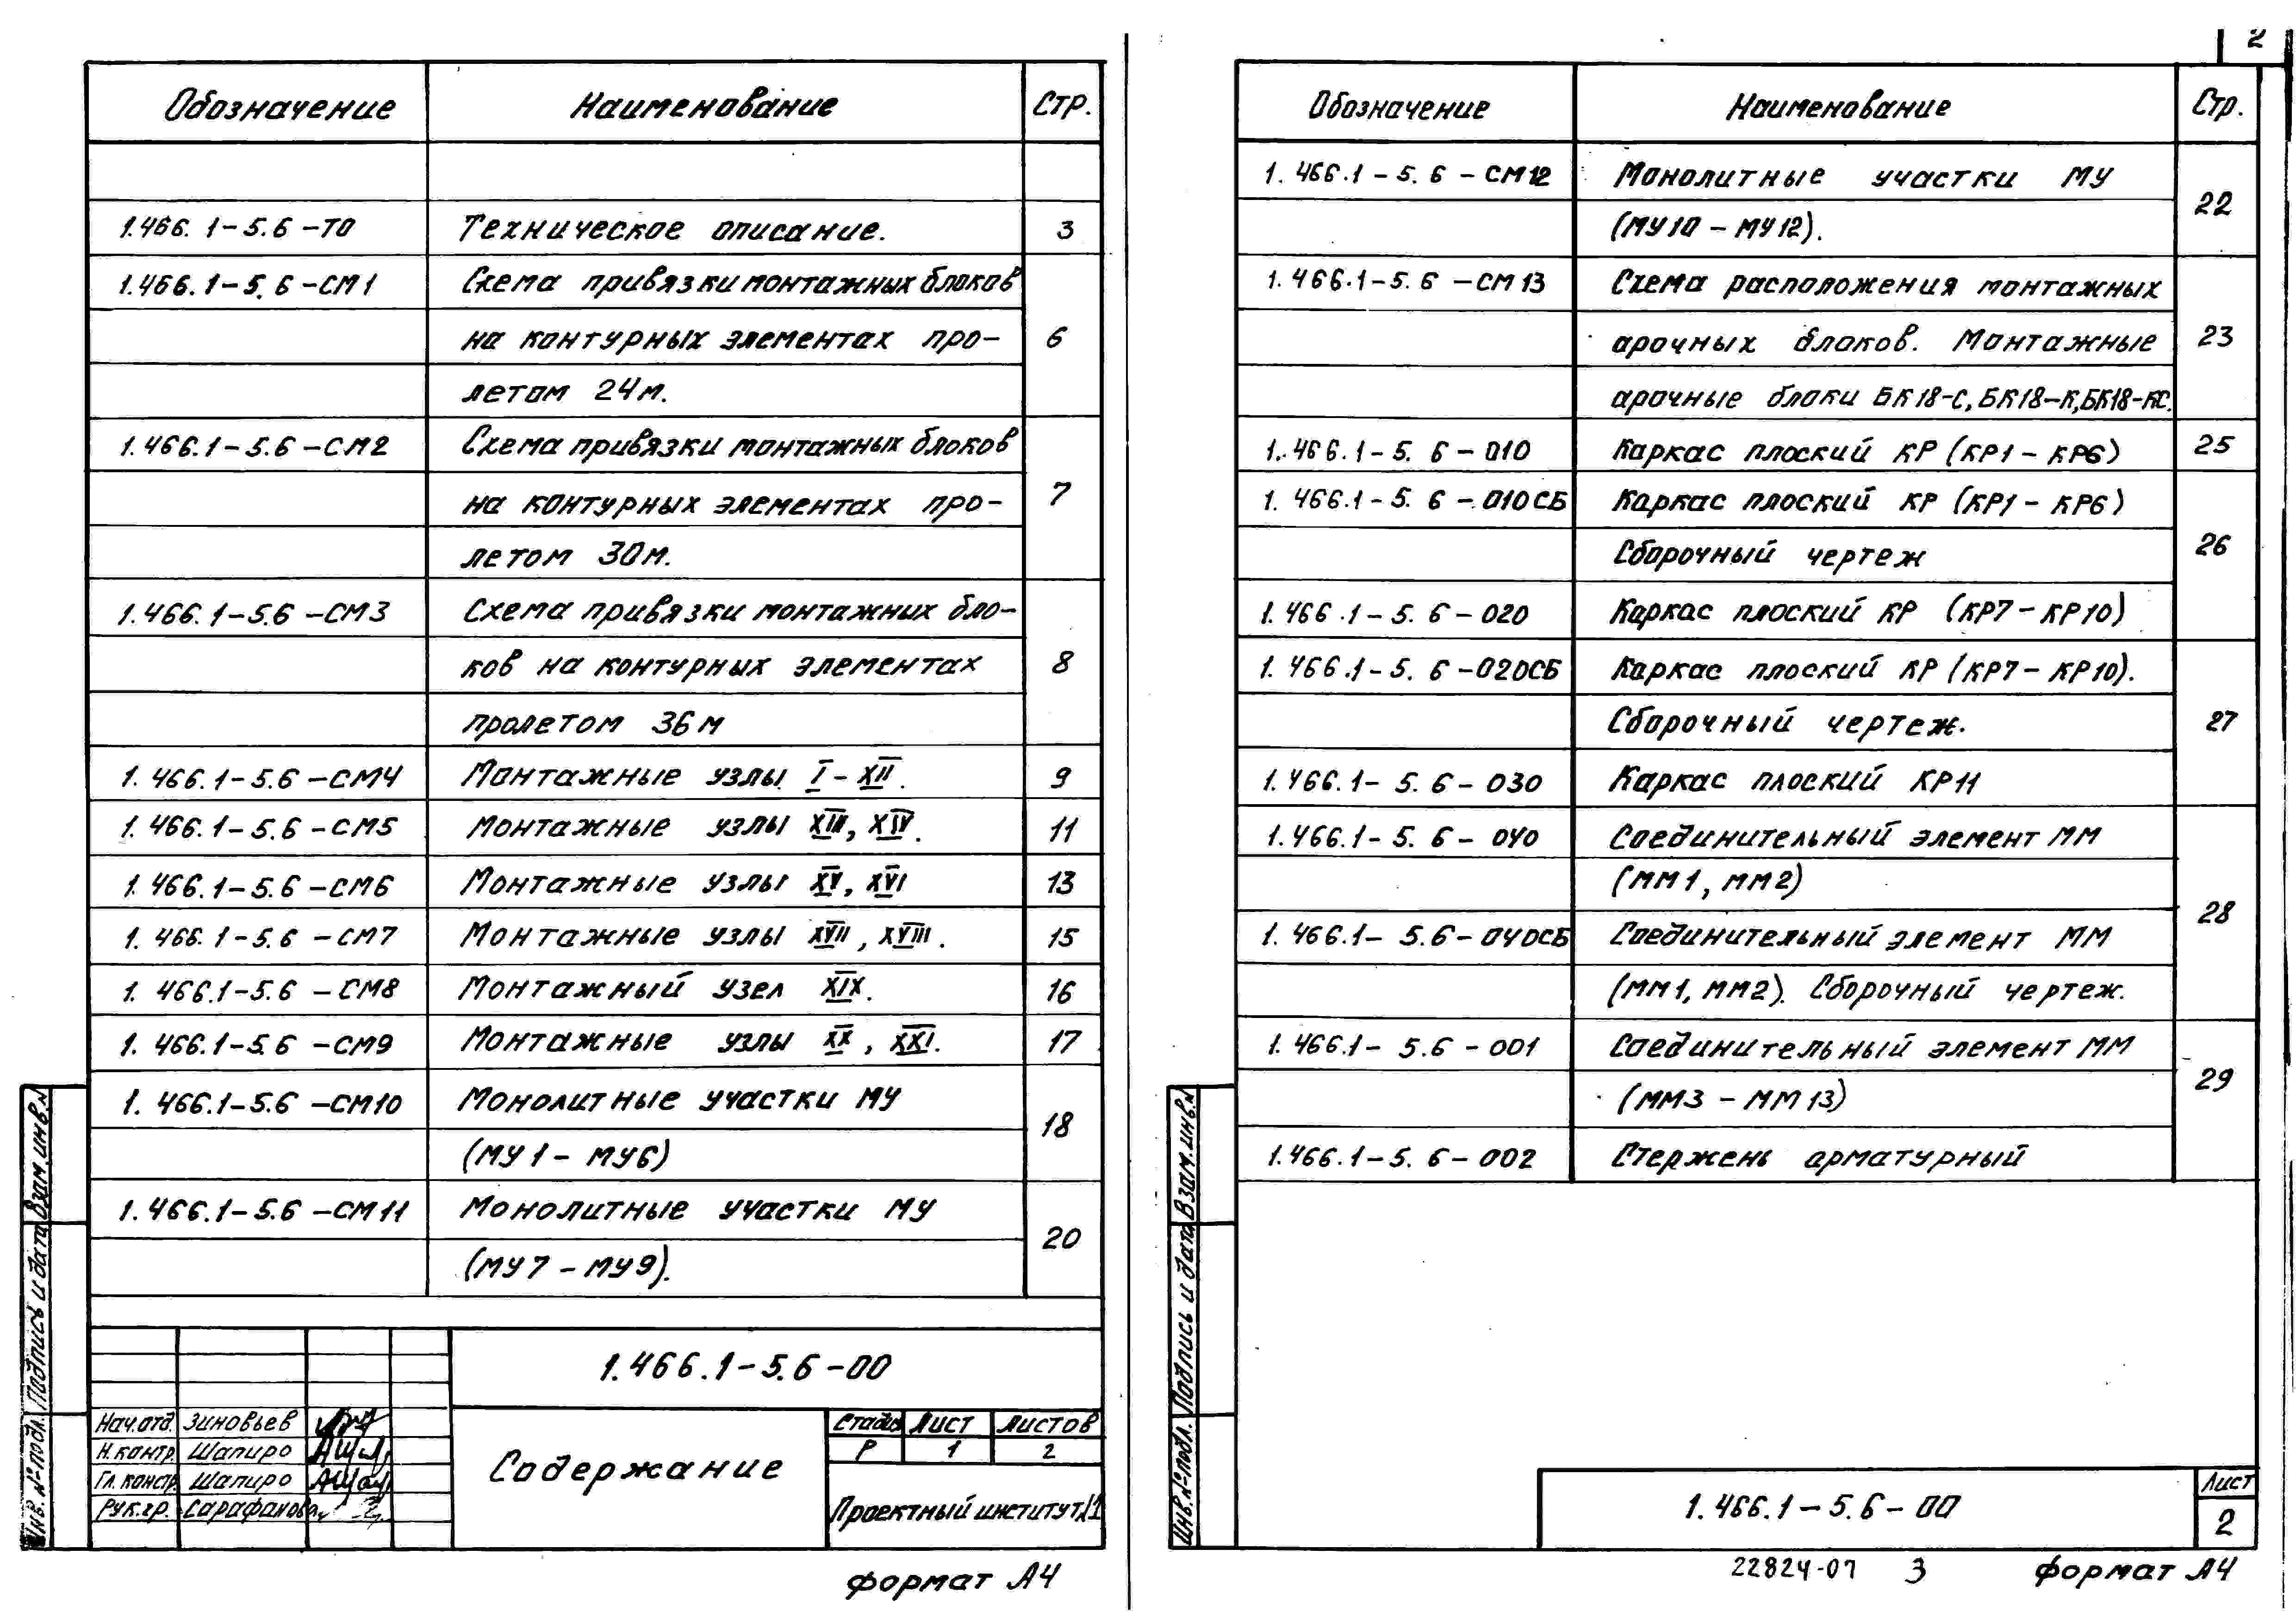 Обозначение Наименование Стр.
1.466.1-5.6-ТО Техническое описание. 3
1.466.1-5.6-СМ1 Схема привязки монтажных блоков
на контурных элементах про- 6
летом 24м.
1.466.1-5.6-СМ2 Схема привязки монтажных блоков
на контурных элементах про- 7
летом 30м.
1.466.1-5.6-СМ3 Схема привязки монтажных бло-
ков на контурных элементах 8
пролетом 36м
1.466.1-5.6-СМ4 Монтажные узлы I-XII. 9
1.466.1-5.6-СМ5 Монтажные узлы XIII, XIV. 11
1.466.1-5.6-СМ6 Монтажные узлы XV, XVI 13
1.466.1-5.6-СМ7 Монтажные узлы XVII, XVIII. 15
1.466.1-5.6-СМ8 Монтажный узел XIX. 16
1.466.1-5.6-СМ9 Монтажные узлы XX, XXI. 17
1.466.1-5.6-СМ10 Монолитные участки МУ
(МУ1-МУ6) 18
1.466.1-5.6-СМ11 Монолитные участки МУ
(МУ7-МУ9). 20
1.466.1-5.6-00
Нач.отд. Зиновьев
Н.контр. Шапиро
Гл. констр. Шапиро
Рук.гр. Сарафанова
Содержание
Стадия Лист Листов
Р 1 2
Проектный институт №1
Взам.инв.№
Подпись и дата
Инв.№подл.
формат А4
2
Обозначение Наименование Стр.
1.466.1-5.6-СМ12 Монолитные участки МУ
(МУ10-МУ12). 22
1.466.1-5.6-СМ13 Схема расположения монтажных
арочных блоков. Монтажные 23
арочные блоки БК18-С, БК18-К, БК18-КС.
1.466.1-5.6-010 Каркас плоский КР (КР1-КР6) 25
1.466.1-5.6-010СБ Каркас плоский КР (КР1-КР6)
Сборочный чертеж 26
1.466.1-5.6-020 Каркас плоский КР (КР7-КР10)
1.466.1-5.6-020СБ Каркас плоский КР (КР7-КР10).
Сборочный чертеж. 27
1.466.1-5.6-030 Каркас плоский КР11
1.466.1-5.6-040 Соединительный элемент ММ
(ММ1, ММ2)
28
1.466.1-5.6-040СБ Соединительный элемент ММ
(ММ1, ММ2). Сборочный чертеж.
1.466.1-5.6-001 Соединительный элемент ММ
(ММ3-ММ13) 29
1.466.1-5.6-002 Стержень арматурный
Взам.инв.№
Подпись и дата
Инв.№подл.
1.466.1-5.6-00
Лист
2
22824-07 3 формат А4